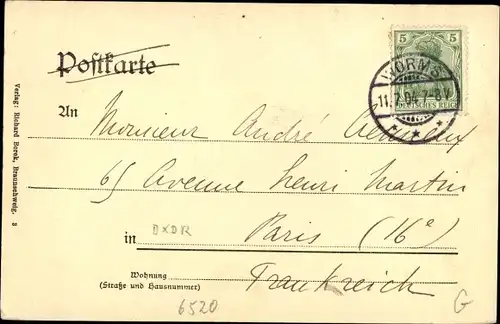 Postkarte
5 5
WORMS
11.7.04. 7-8V
DEUTSCHES REICH
An Monsieur André
65 Avenue Henri Martin
DXDR
in Paris (16e)
Wohnung
(Straße und Hausnummer)
Frankreich
6520
G
Verlag: Richard Borek, Braunschweig. 8